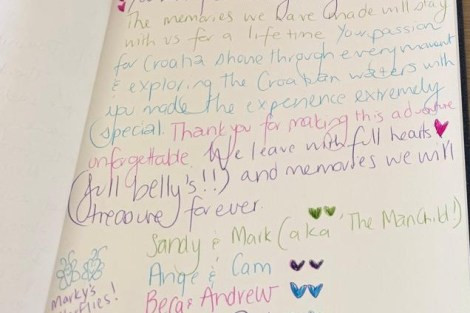 The memories we have made will stay
with us for a life time Your passion
for Croatia shone through every moment
& exploring the Croatian waters with
you made the experience extremely
special. Thank you for making this adventure
unforgettable. We leave with full hearts
(full belly's!!) and memories we will
treasure forever.
Sandy & Mark (aka 'The ManChild!')
Ange & Cam
& Andrew
Marky's